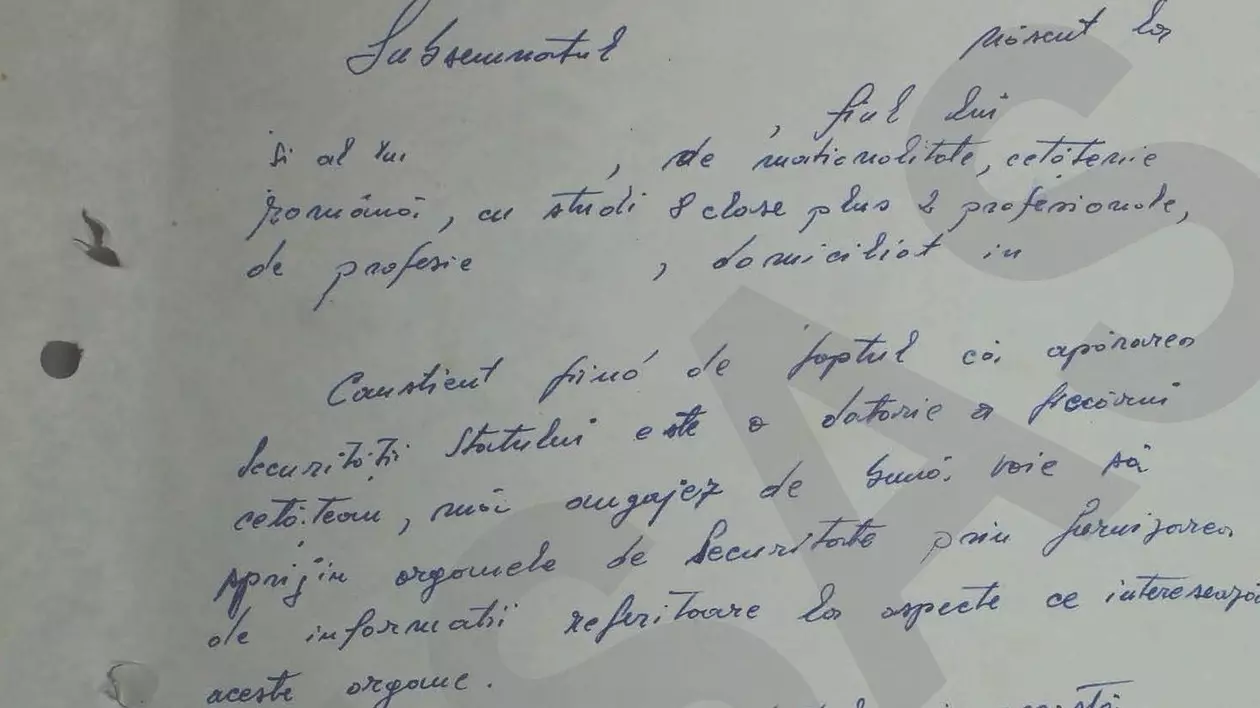 Subsemnatul născut la
, fiul lui
și al lui , de naționalitate, cetățenie
română, cu studi 8 clase plus 2 profesionale,
de profesie , domiciliat in
Conștient fiind de faptul că apărarea
Securității Statului este o datorie a fiecărui
cetățean, mă angajez de bună voie să
sprijin organele de Securitate prin furnizarea
de informații referitoare la aspecte ce interesează
aceste organe.